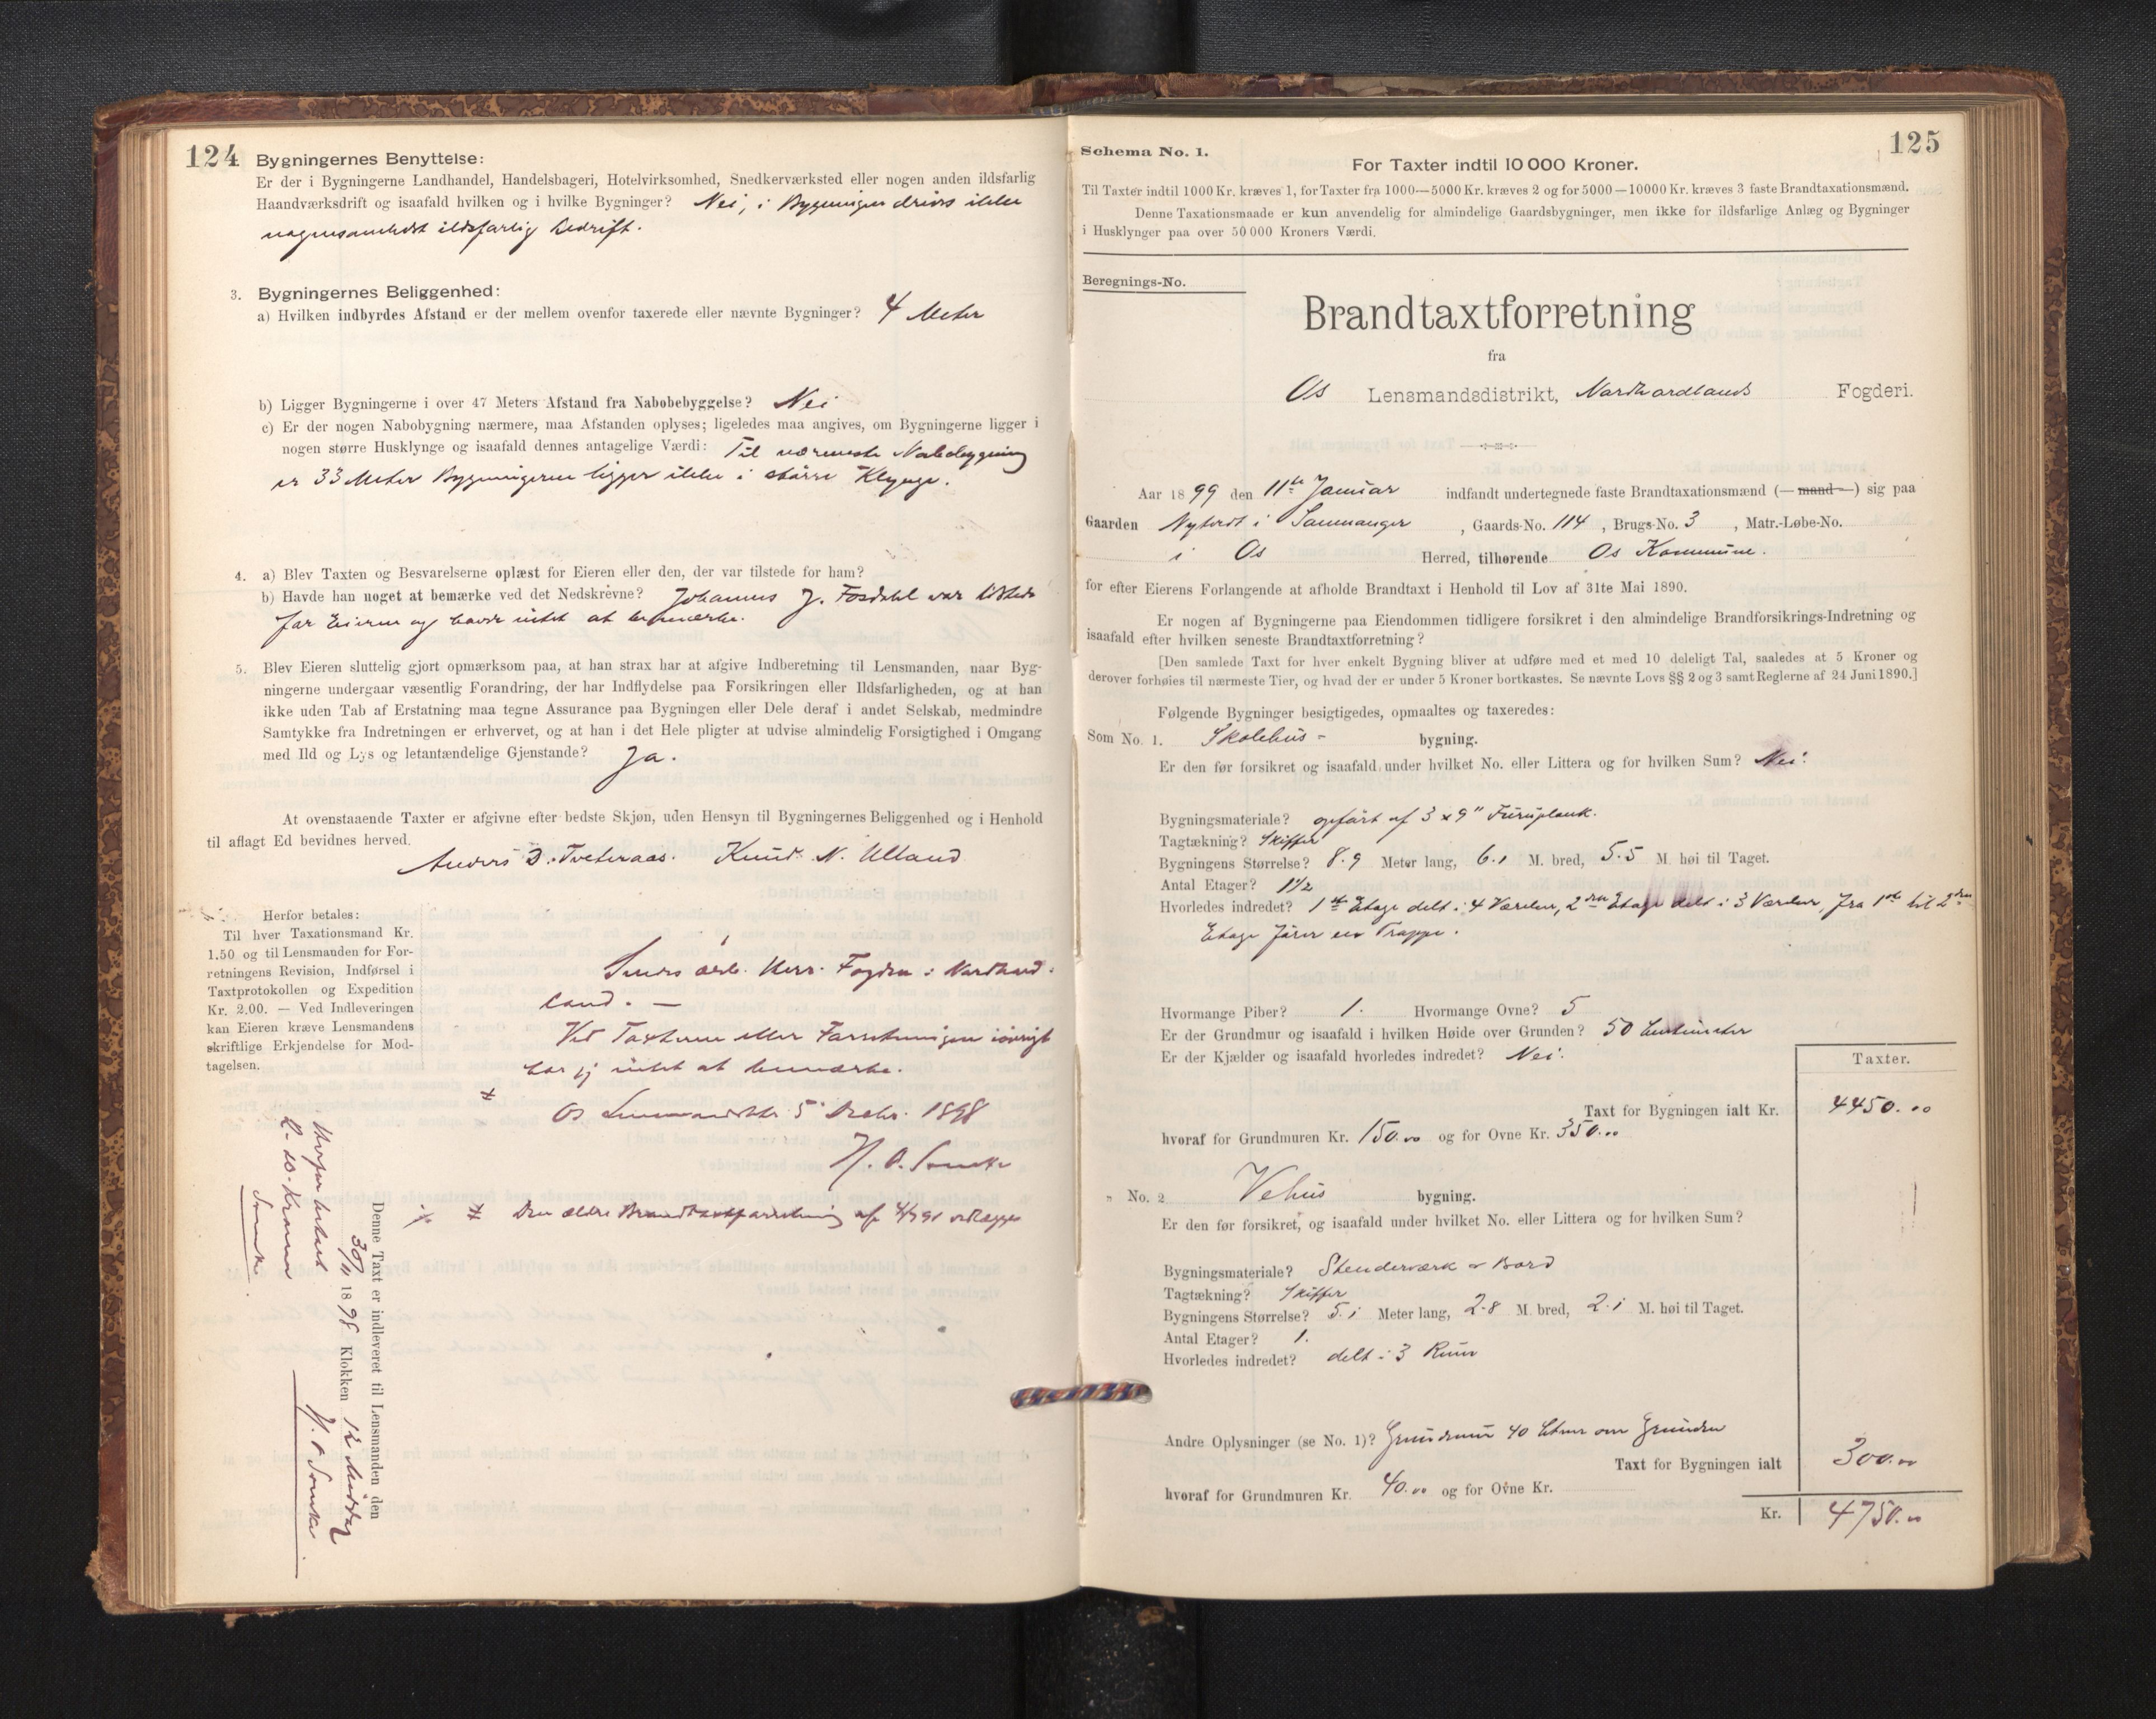 124
Bygningernes Benyttelse:
Er der i Bygningerne Landhandel, Handelsbageri, Hotelvirksomhed, Snedkerværksted eller nogen anden ildsfarlig
Haandværksdrift og isaafald hvilken og i hvilke Bygninger? Nei, i Bygningen drives ikke
nogensomhelst ildsfarlig Bedrift.
3. Bygningernes Beliggenhed:
a) Hvilken indbyrdes Afstand er der mellem ovenfor taxerede eller nævnte Bygninger? 4 Meter
b) Ligger Bygningerne i over 47 Meters Afstand fra Nabobebyggelse? Nei
c) Er der nogen Nabobygning nærmere, maa Afstanden oplyses; ligeledes maa angives, om Bygningerne ligger i
nogen større Husklynge og isaafald dennes antagelige Værdi: Til nærmeste Nabobygning
er 33 Meter Bygningerne ligger ikke i større Klynge.
4. a) Blev Taxten og Besvarelserne oplæst for Eieren eller den, der var tilstede for ham?
b) Havde han noget at bemærke ved det Nedskrevne? Johannes J. Fosdahl var tilstede
for Eieren og havde intet at bemærke.
5. Blev Eieren sluttelig gjort opmærksom paa, at han strax har at afgive Indberetning til Lensmanden, naar Byg-
ningerne undergaar væsentlig Forandring, der har Indflydelse paa Forsikringen eller Ildsfarligheden, og at han
ikke uden Tab af Erstatning maa tegne Assurance paa Bygningen eller Dele deraf i andet Selskab, medmindre
Samtykke fra Indretningen er erhvervet, og at han i det Hele pligter at udvise almindelig Forsigtighed i Omgang
med Ild og Lys og letantændelige Gjenstande? Ja.
At ovenstaaende Taxter er afgivne efter bedste Skjøn, uden Hensyn til Bygningernes Beliggenhed og i Henhold
til aflagt Ed bevidnes herved.
Anders D. Tveteraas. Knud N. Ulland
Herfor betales:
Til hver Taxationsmand Kr.
1.50 og til Lensmanden for For-
retningens Revision, Indførsel i
Taxtprotokollen og Expedition
Kr. 2.00. — Ved Indleveringen
kan Eieren kræve Lensmandens
skriftlige Erkjendelse for Mod-
tagelsen.
Sendes ærb. Herr. Fogden i Nordhord-
land. —
Ved Taxterne eller Forretningen iøvrigt
har jeg intet at bemærke.
Os 5 Decbr. 1898
Den ældre Brandtaxtforretning af vedlægges
Denne Taxt er indleveret til Lensmanden den
30/11 1898 Klokken 12 Middag
Herfor betalt
Kroner
125
Schema No. 1.
For Taxter indtil 10 000 Kroner.
Til Taxter indtil 1000 Kr. kræves 1, for Taxter fra 1000—5000 Kr. kræves 2 og for 5000—10000 Kr. kræves 3 faste Brandtaxationsmænd.
Denne Taxationsmaade er kun anvendelig for almindelige Gaardsbygninger, men ikke for ildsfarlige Anlæg og Bygninger
i Husklynger paa over 50 000 Kroners Værdi.
Beregnings-No.
Brandtaxtforretning
fra
Os Lensmandsdistrikt, Nordhordlands Fogderi.
Aar 1899 den 11te Januar indfandt undertegnede faste Brandtaxationsmænd (—mand—) sig paa
Gaarden i Samnanger, Gaards-No. 114, Brugs-No. 3, Matr.-Løbe-No.
i Os Herred, tilhørende Os Kommune.
for efter Eierens Forlangende at afholde Brandtaxt i Henhold til Lov af 31te Mai 1890.
Er nogen af Bygningerne paa Eiendommen tidligere forsikret i den almindelige Brandforsikrings-Indretning og
isaafald efter hvilken seneste Brandtaxtforretning?
[Den samlede Taxt for hver enkelt Bygning bliver at udføre med et med 10 deleligt Tal, saaledes at 5 Kroner og
derover forhøies til nærmeste Tier, og hvad der er under 5 Kroner bortkastes. Se nævnte Lovs §§ 2 og 3 samt Reglerne af 24 Juni 1890.]
Følgende Bygninger besigtigedes, opmaaltes og taxeredes:
Som No. 1. Skolehus- bygning.
Er den før forsikret og isaafald under hvilket No. eller Littera og for hvilken Sum? Nei.
Bygningsmateriale? opført af 3 x 9" Furuplank.
Tagtækning? Skiffer
Bygningens Størrelse? 8.9 Meter lang, 6.1 M. bred, 5.5 M. høi til Taget.
Antal Etager? 1½
Hvorledes indredet? 1ste Etage delt i 4 Værelser, 2den Etage delt i 3 Værelser, fra 1ste til 2den
Etage fører en Trappe.
Hvormange Piber? 1. Hvormange Ovne? 5
Er der Grundmur og isaafald i hvilken Høide over Grunden? 50 Centimeter
Er der Kjælder og isaafald hvorledes indredet? Nei.
Taxter.
Taxt for Bygningen ialt Kr. 4450.00
hvoraf for Grundmuren Kr. 150.00 og for Ovne Kr. 350.00
" No. 2 Vehus bygning.
Er den før forsikret, og isaafald under hvilket No. eller Littera og for hvilken Sum?
Bygningsmateriale? Stenderværk & Bord
Tagtækning? Skiffer
Bygningens Størrelse? 5.1 Meter lang, 2.8 M. bred, 2.1 M. høi til Taget.
Antal Etager? 1.
Hvorledes indredet? delt i 3 Rum
Andre Oplysninger (se No. 1)? Grundmur 40 Ctmr over Grunden
Taxt for Bygningen ialt 300.00
hvoraf for Grundmuren Kr. 40.00 og for Ovne Kr.
Kr. 4750.00